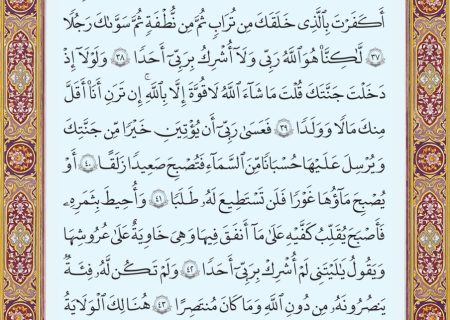 أَكَفَرْتَ بِٱلَّذِى خَلَقَكَ مِن تُرَابٍ ثُمَّ مِن نُّطْفَةٍ ثُمَّ سَوَّىٰكَ رَجُلًا
٣٧ لَّٰكِنَّا۠ هُوَ ٱللَّهُ رَبِّى وَلَآ أُشْرِكُ بِرَبِّىٓ أَحَدًا ٣٨ وَلَوْلَآ إِذْ
دَخَلْتَ جَنَّتَكَ قُلْتَ مَا شَآءَ ٱللَّهُ لَا قُوَّةَ إِلَّا بِٱللَّهِ ۚ إِن تَرَنِ أَنَا۠ أَقَلَّ
مِنكَ مَالًا وَوَلَدًا ٣٩ فَعَسَىٰ رَبِّىٓ أَن يُؤْتِيَنِ خَيْرًا مِّن جَنَّتِكَ
وَيُرْسِلَ عَلَيْهَا حُسْبَانًا مِّنَ ٱلسَّمَآءِ فَتُصْبِحَ صَعِيدًا زَلَقًا ٤٠ أَوْ
يُصْبِحَ مَآؤُهَا غَوْرًا فَلَن تَسْتَطِيعَ لَهُۥ طَلَبًا ٤١ وَأُحِيطَ بِثَمَرِهِۦ
فَأَصْبَحَ يُقَلِّبُ كَفَّيْهِ عَلَىٰ مَآ أَنفَقَ فِيهَا وَهِىَ خَاوِيَةٌ عَلَىٰ عُرُوشِهَا
وَيَقُولُ يَٰلَيْتَنِى لَمْ أُشْرِكْ بِرَبِّىٓ أَحَدًا ٤٢ وَلَمْ تَكُن لَّهُۥ فِئَةٌ
يَنصُرُونَهُۥ مِن دُونِ ٱللَّهِ وَمَا كَانَ مُنتَصِرًا ٤٣ هُنَالِكَ ٱلْوَلَٰيَةُ